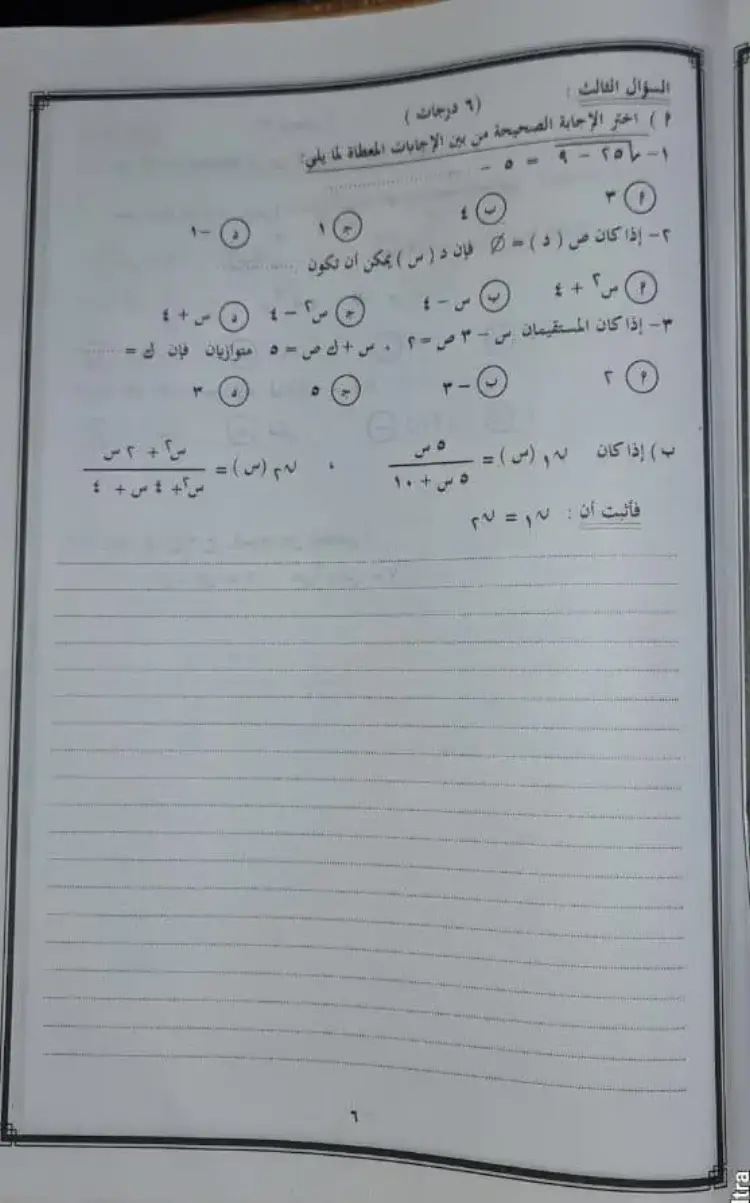 السؤال الثالث :
(٦ درجات )
أ ) اختر الإجابة الصحيحة من بين الإجابات المعطاة لما يلي:
١- √(٢٥ - ٩) = ٥ - ..........
أ ٣ ب ٤ ج ١ د -١
٢- إذا كان ص ( د ) = ∅ فإن د ( س ) يمكن أن تكون ..........
أ س٢ + ٤ ب س - ٤ ج س٢ - ٤ د س + ٤
٣- إذا كان المستقيمان س - ٣ ص = ٢ ، س + ك ص = ٥ متوازيان فإن ك = ......
أ ٢ ب -٣ ج ٥ د ٣
ب ) إذا كان ن١ (س) = ٥ س / ٥ س + ١٠ ، ن٢ (س) = س٢ + ٢ س / س٢ + ٤ س + ٤
فأثبت أن : ن١ = ن٢
٦
tra